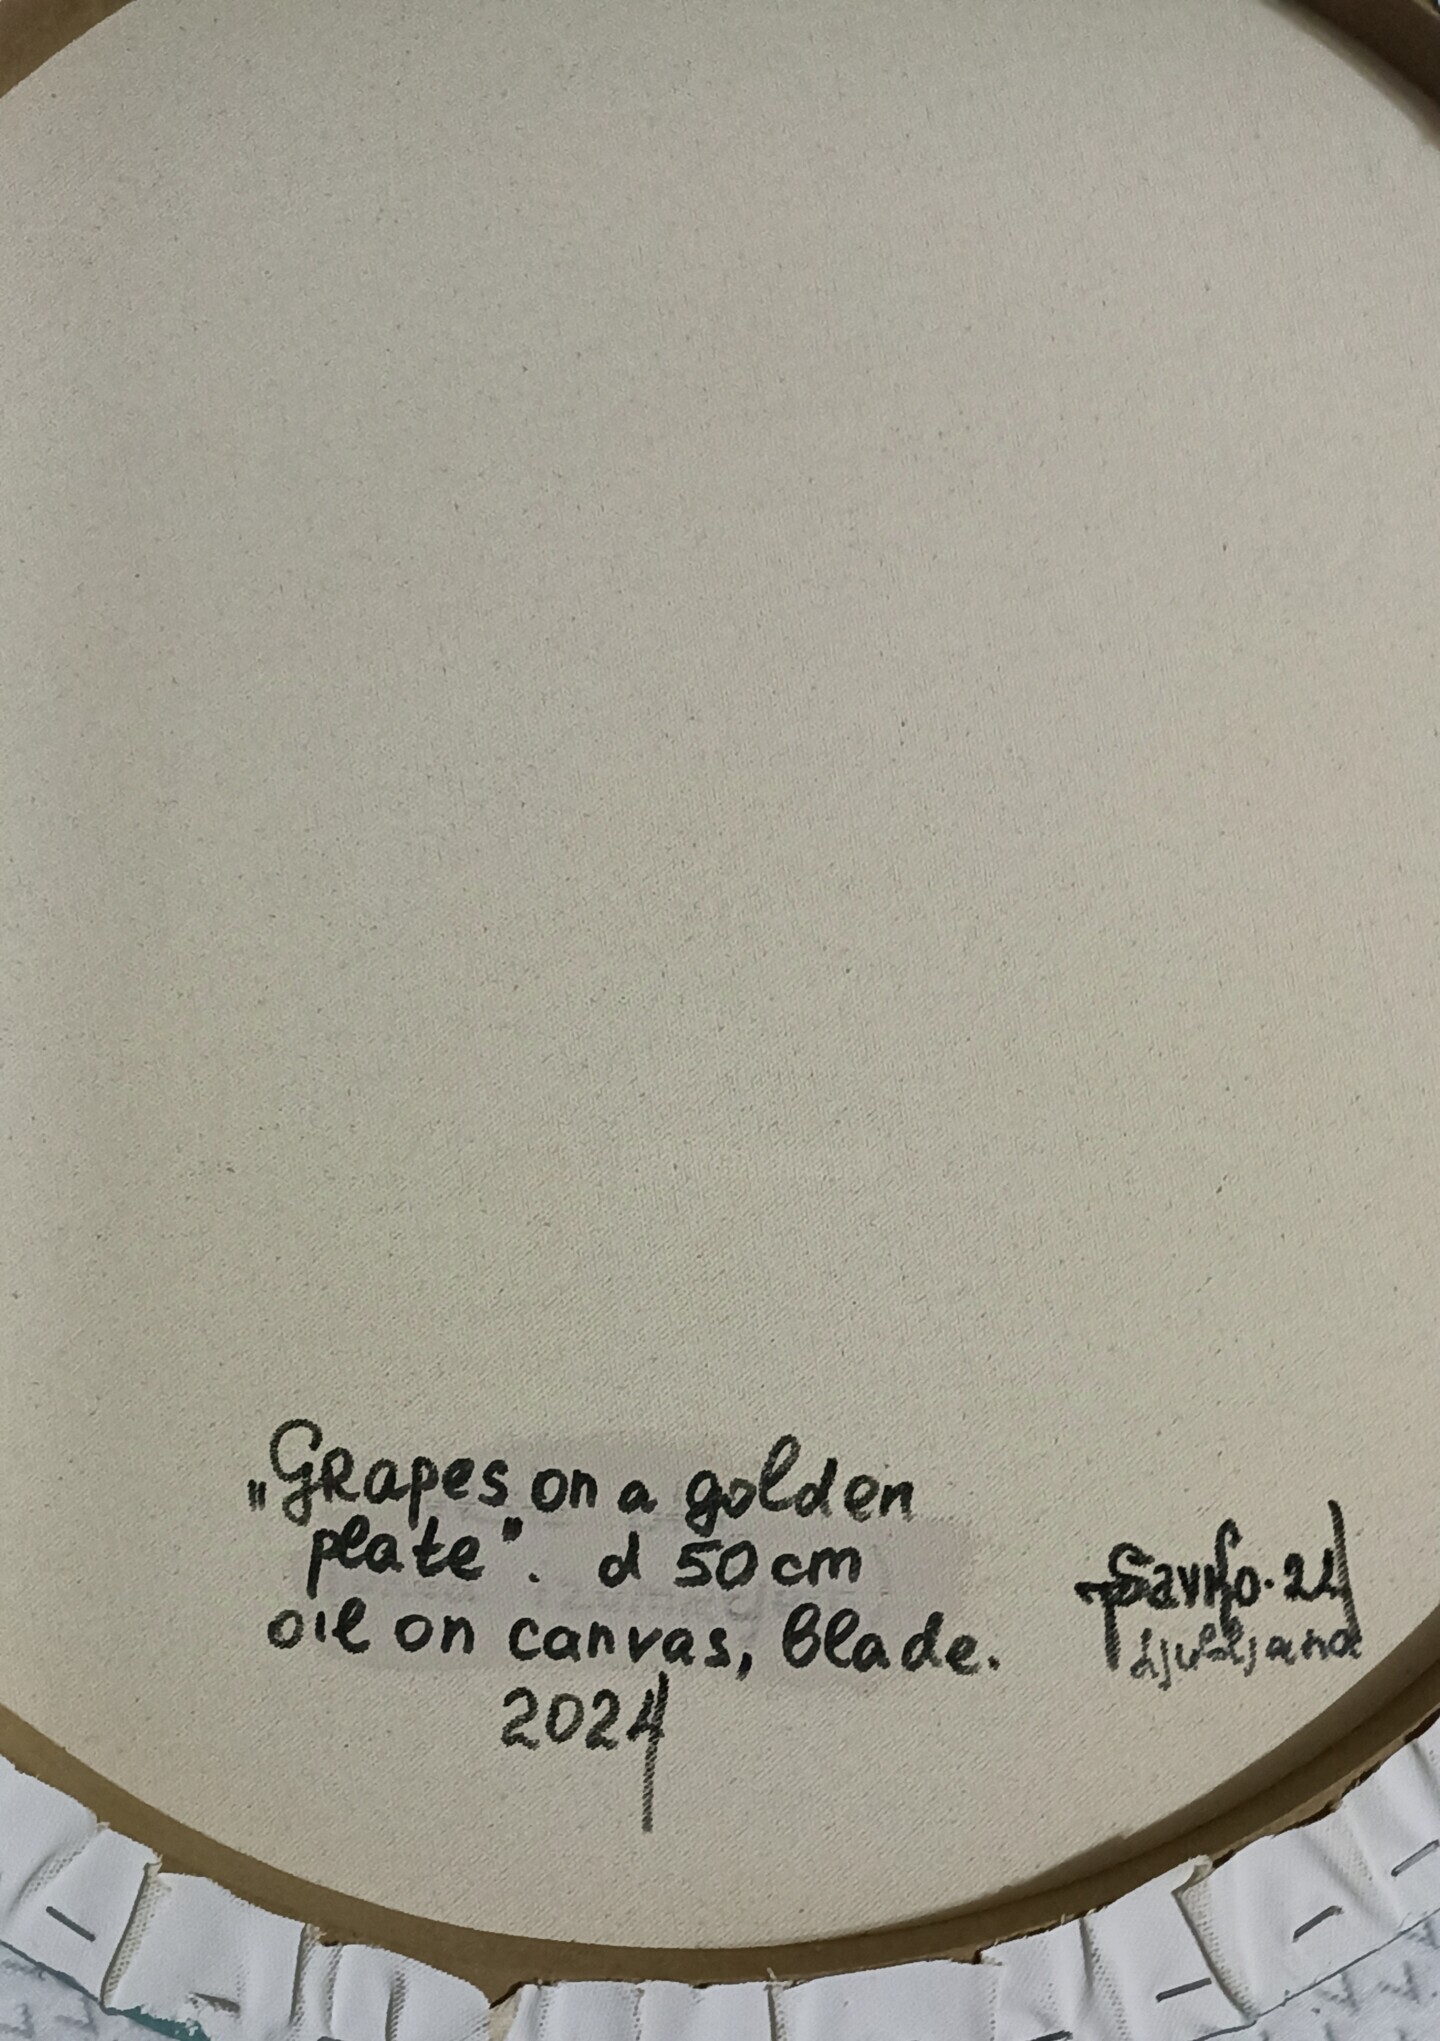 „Grapes on a golden
plate". d 50 cm
oil on canvas, blade.
2024
Savko. 24
Ljubljana